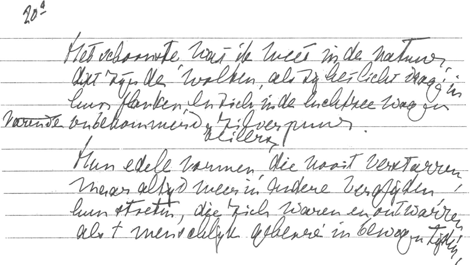 20a
Het schoonste, wat ik weet in de natuur,
dat zijn de wolken, als zij het licht dragen in
hun flanken, en zich in de luchtzee wagen
varende onbekommerd, zilverpuur.
Hun edele vormen, die nooit verstarren,
maar altijd weer in andere verglijden,
hun strekn, die zich waren en ontwarren
als 't menschlijk gebeuren in bewogen tijden,